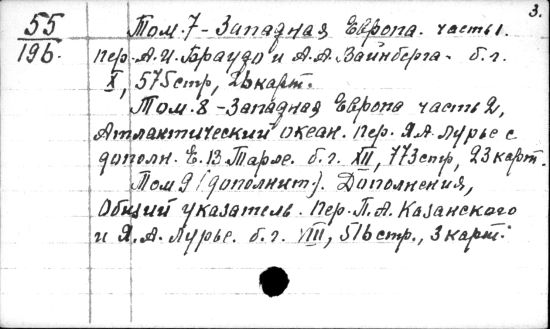 3.
55
196.
Том. 7 - Западная Европа. часть 1.
пер. А.И. Браудо и А.А. Вайнберга. б.г.
X, 575 стр, 26 карт.
Том. 8 - Западная Европа часть 2,
Атлантический океан. пер. Я.А. Лурье с
дополн. Е.В. Тарле. б.г. XII, 773 стр, 23 карт.
Том 9 (дополнит.). Дополнения,
Общий указатель. Пер. П.А. Казанского
и Я.А. Лурье. б.г. VIII, 516 стр., 3 карт.